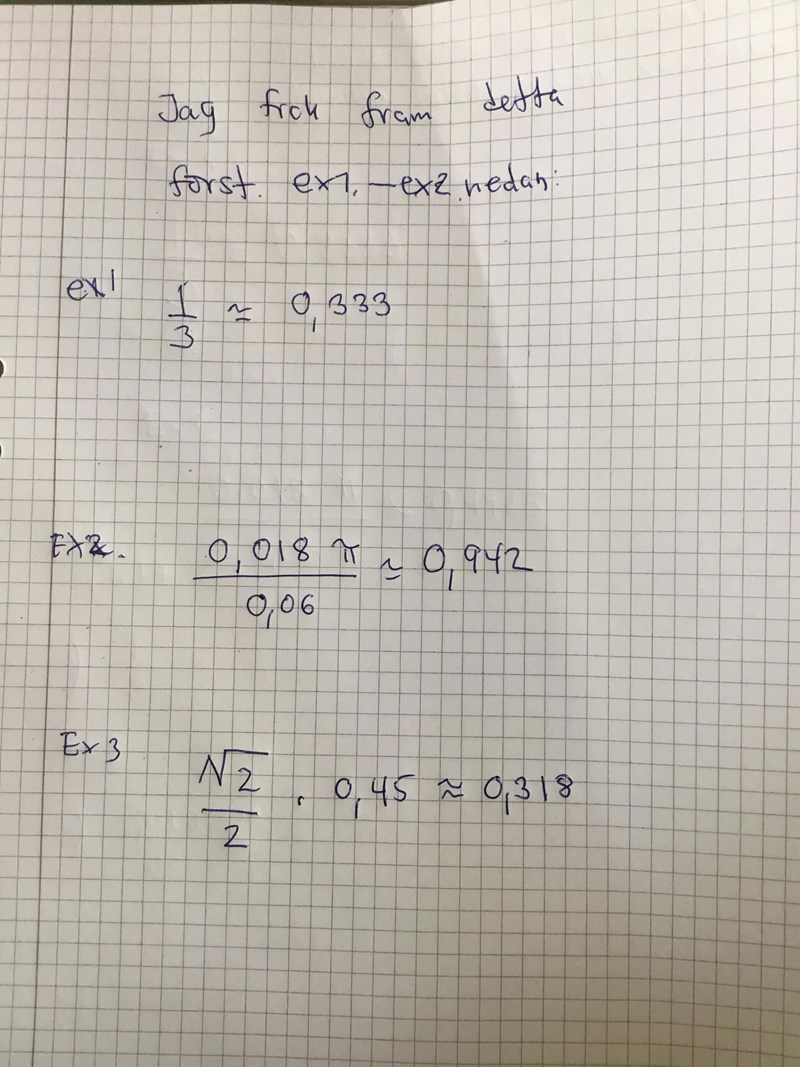 Jag fick fram detta
först. ex1. — ex2. nedan:
ex1 1/3 ≃ 0,333
EX2. 0,018 π / 0,06 ≃ 0,942
Ex 3 √2/2 . 0,45 ≈ 0,318